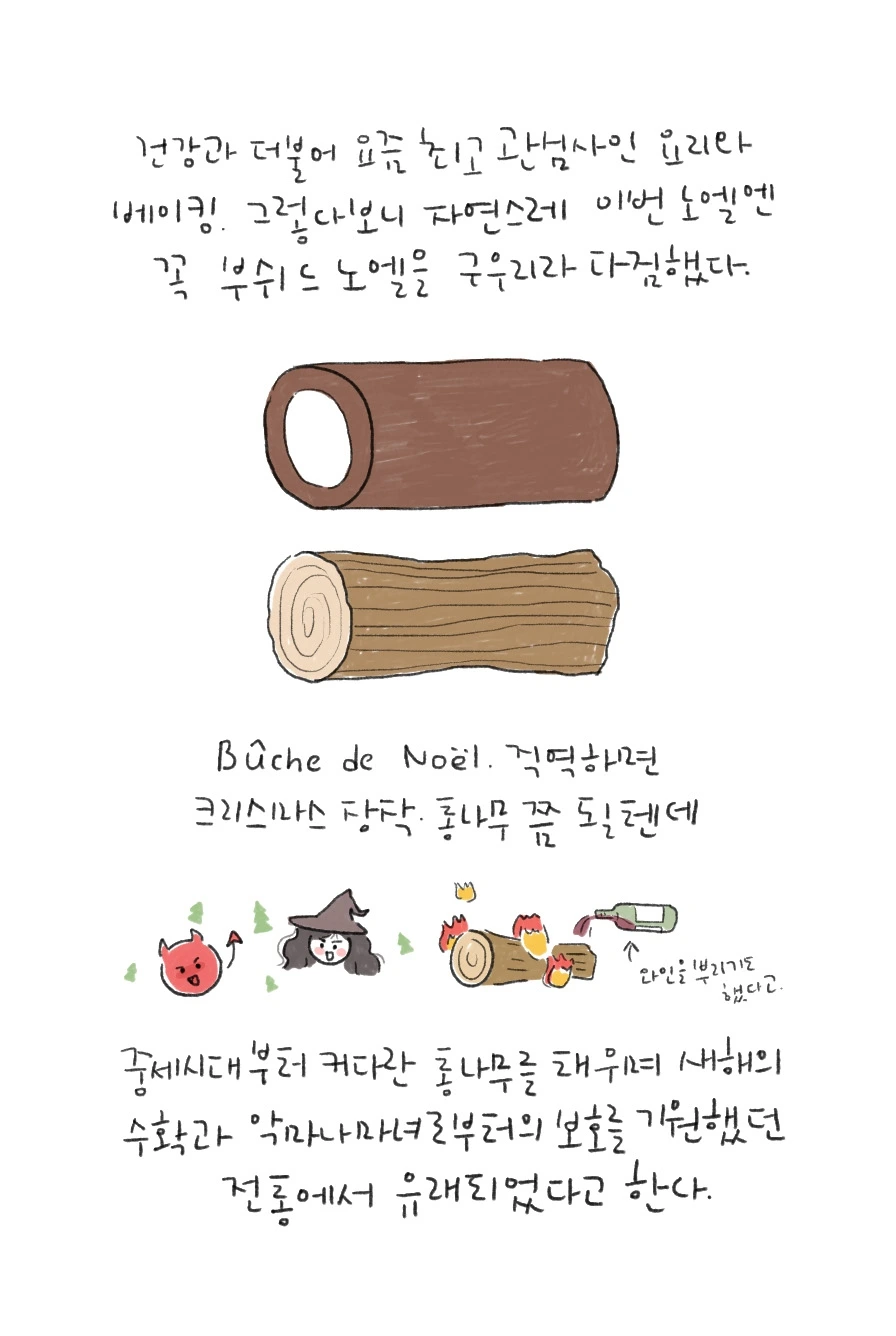 건강과 더불어 요즘 최고 관심사인 요리와
베이킹. 그렇다보니 자연스레 이번 노엘엔
꼭 부쉬 드 노엘을 구우리라 다짐했다.
Bûche de Noël. 직역하면
크리스마스 장작. 통나무 쯤 될텐데
와인을 뿌리기도
했다고.
중세시대부터 커다란 통나무를 태우며 새해의
수확과 악마나 마녀로부터의 보호를 기원했던
전통에서 유래되었다고 한다.